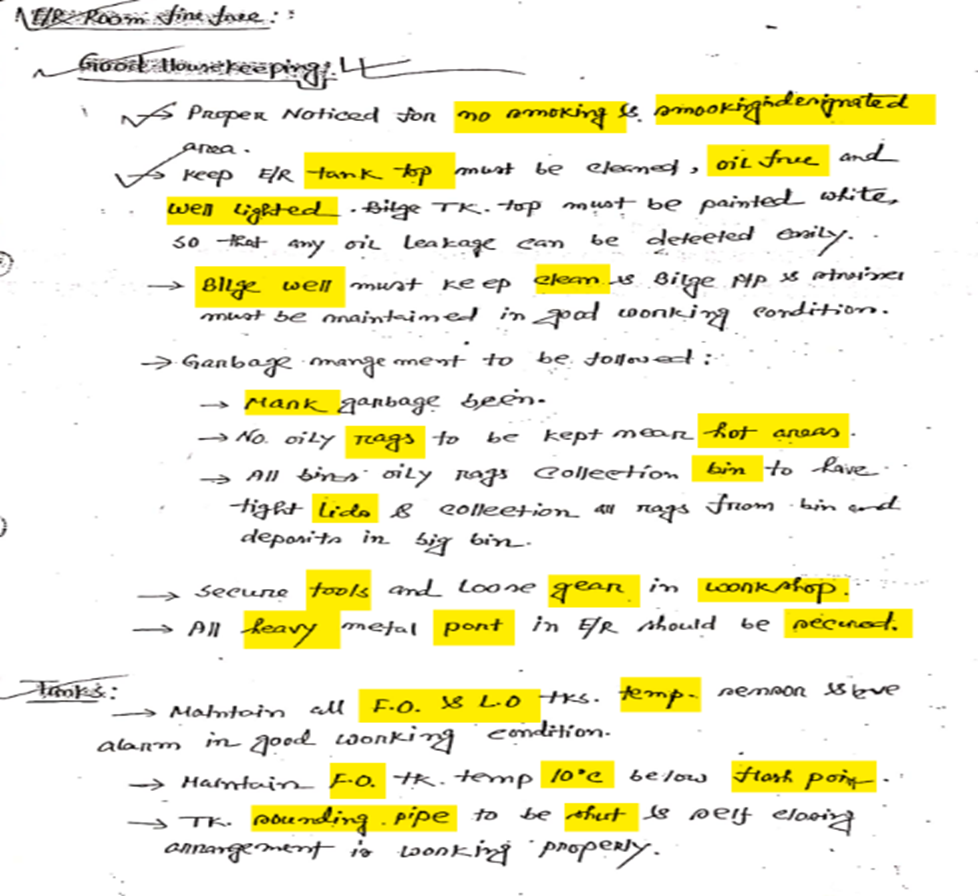 E/R Room fire free::
Good Housekeeping:
→ Proper Noticed for no smoking & smooking in designated
area.
→ Keep E/R tank top must be cleaned, oil free and
well lighted. Bilge TK. top must be painted white,
so that any oil leakage can be detected easily.
→ Bilge well must keep clean & Bilge P/P & strainer
must be maintained in good working condition.
→ Garbage mangement to be followed:
→ Mark garbage been.
→ No. oily rags to be kept near hot areas.
→ All bins oily rags collection bin to have
tight lids & collection all rags from bin and
deposits in big bin.
→ Secure tools and loose gear in workshop.
→ All heavy metal part in E/R should be secured.
Tanks:
→ Maintain all F.O. & L.O TKs. temp. sensor &
alarm in good working condition.
→ Maintain F.O. TK. temp 10°C below flash point.
→ TK. sounding pipe to be shut & self closing
arrangement is working properly.